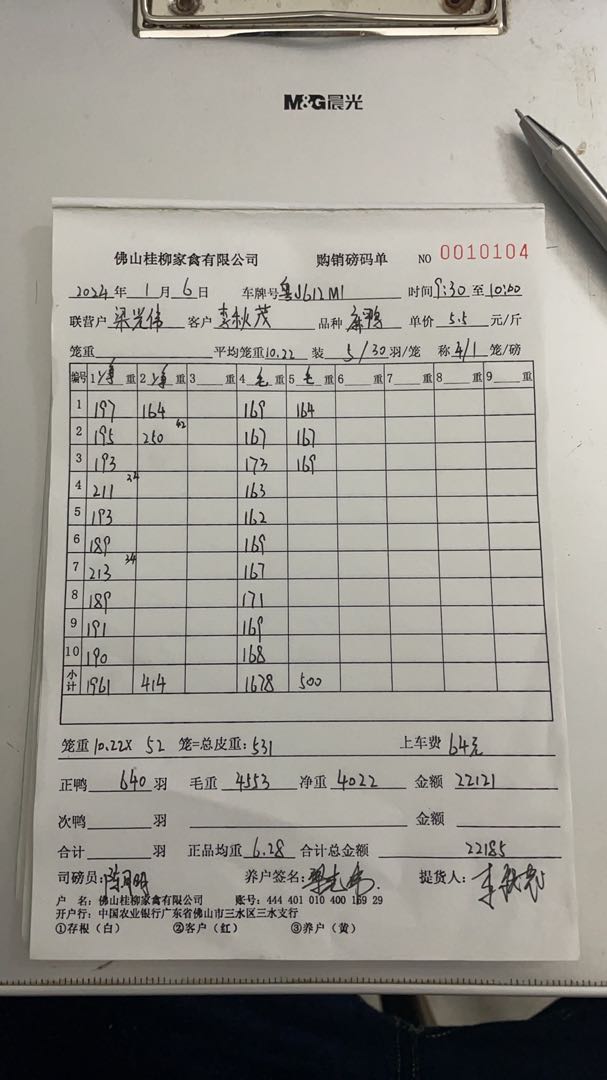 M&G晨光
佛山桂柳家禽有限公司 购销磅码单 NO 0010104
2024年1月6日 车牌号粤J612M1 时间9:30至10:00
联营户梁光伟 客户李秋茂 品种麻鸭 单价5.5元/斤
笼重 平均笼重10.22 装5/30羽/笼 称4/1笼/磅
编号 1净重 2净重 3重 4毛重 5毛重 6重 7重 8重 9重
1 197 164 169 164
2 195 250 42 167 167
3 193 173 169
4 211 34 163
5 193 162
6 189 169
7 213 34 167
8 189 171
9 191 169
10 190 168
小计 1961 414 1678 500
笼重10.22X 52 笼=总皮重:531 上车费64元
正鸭640羽 毛重4553 净重4022 金额22121
次鸭 羽 金额
合计 羽 正品均重6.28 合计总金额22185
司磅员: 养户签名:梁光伟 提货人:李秋茂
户 名:佛山桂柳家禽有限公司 账号:444 401 010 400 159 29
开户行:中国农业银行广东省佛山市三水区三水支行
①存根(白) ②客户(红) ③养户(黄)